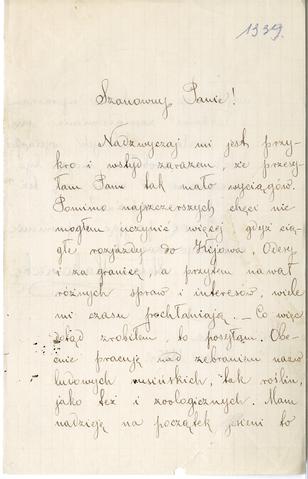 1339.
Szanowny Panie!
Nadzwyczaj mi jest przy-
kro i wstyd zarazem, że przesy-
łam Panu tak mało wyciągów.
Pomimo najszczerszych chęci nie
mogłem uczynić więcej gdyż cią-
głe rozjazdy do Kijowa, Odessy
i za granicę, a przytem nawał
różnych spraw i interesów, wiele
mi czasu pochłaniają. – Co więc
dotąd zrobiłem, to posyłam. Obe-
cnie pracuję nad zebraniem nazw
ludowych rusińskich, tak roślin,
jako też i zoologicznych. Mam
nadzieję na początek jesieni to